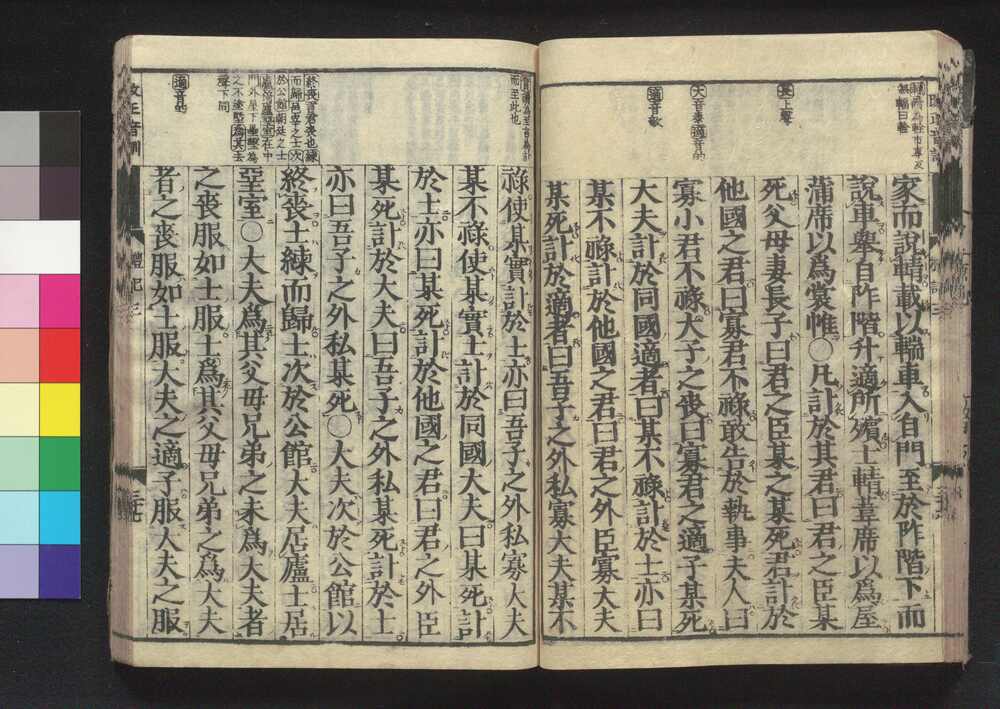 家而說輤載以輲車入自門至於阼階下而
說車舉自阼階升適所殯士輤葦席以爲屋
蒲席以爲裳帷○凡訃於其君曰君之臣某
死父母妻長子曰君之臣某之某死君訃於
他國之君曰寡君不祿敢告於執事夫人曰
寡小君不祿大子之喪曰寡君之適子某死
大夫訃於同國適者曰某不祿訃於士亦曰
某不祿訃於他國之君曰君之外臣寡大夫
某死訃於適者曰吾子之外私寡大夫某不
祿使某實訃於士亦曰吾子之外私寡大夫
某不祿使某實士訃於同國大夫曰某死訃
於士亦曰某死訃於他國之君曰君之外臣
某死訃於大夫曰吾子之外私某死訃於士
亦曰吾子之外私某死○大夫次於公館以
終喪士練而歸士次於公館大夫居廬士居
堊室○大夫爲其父母兄弟之未爲大夫者
之喪服如士服士爲其父母兄弟之爲大夫
者之喪服如士服大夫之適子服大夫之服
長上聲
大音泰適音的
適音敵
實讀為至言為訃
而至此也
適音的
改正音訓
禮記三